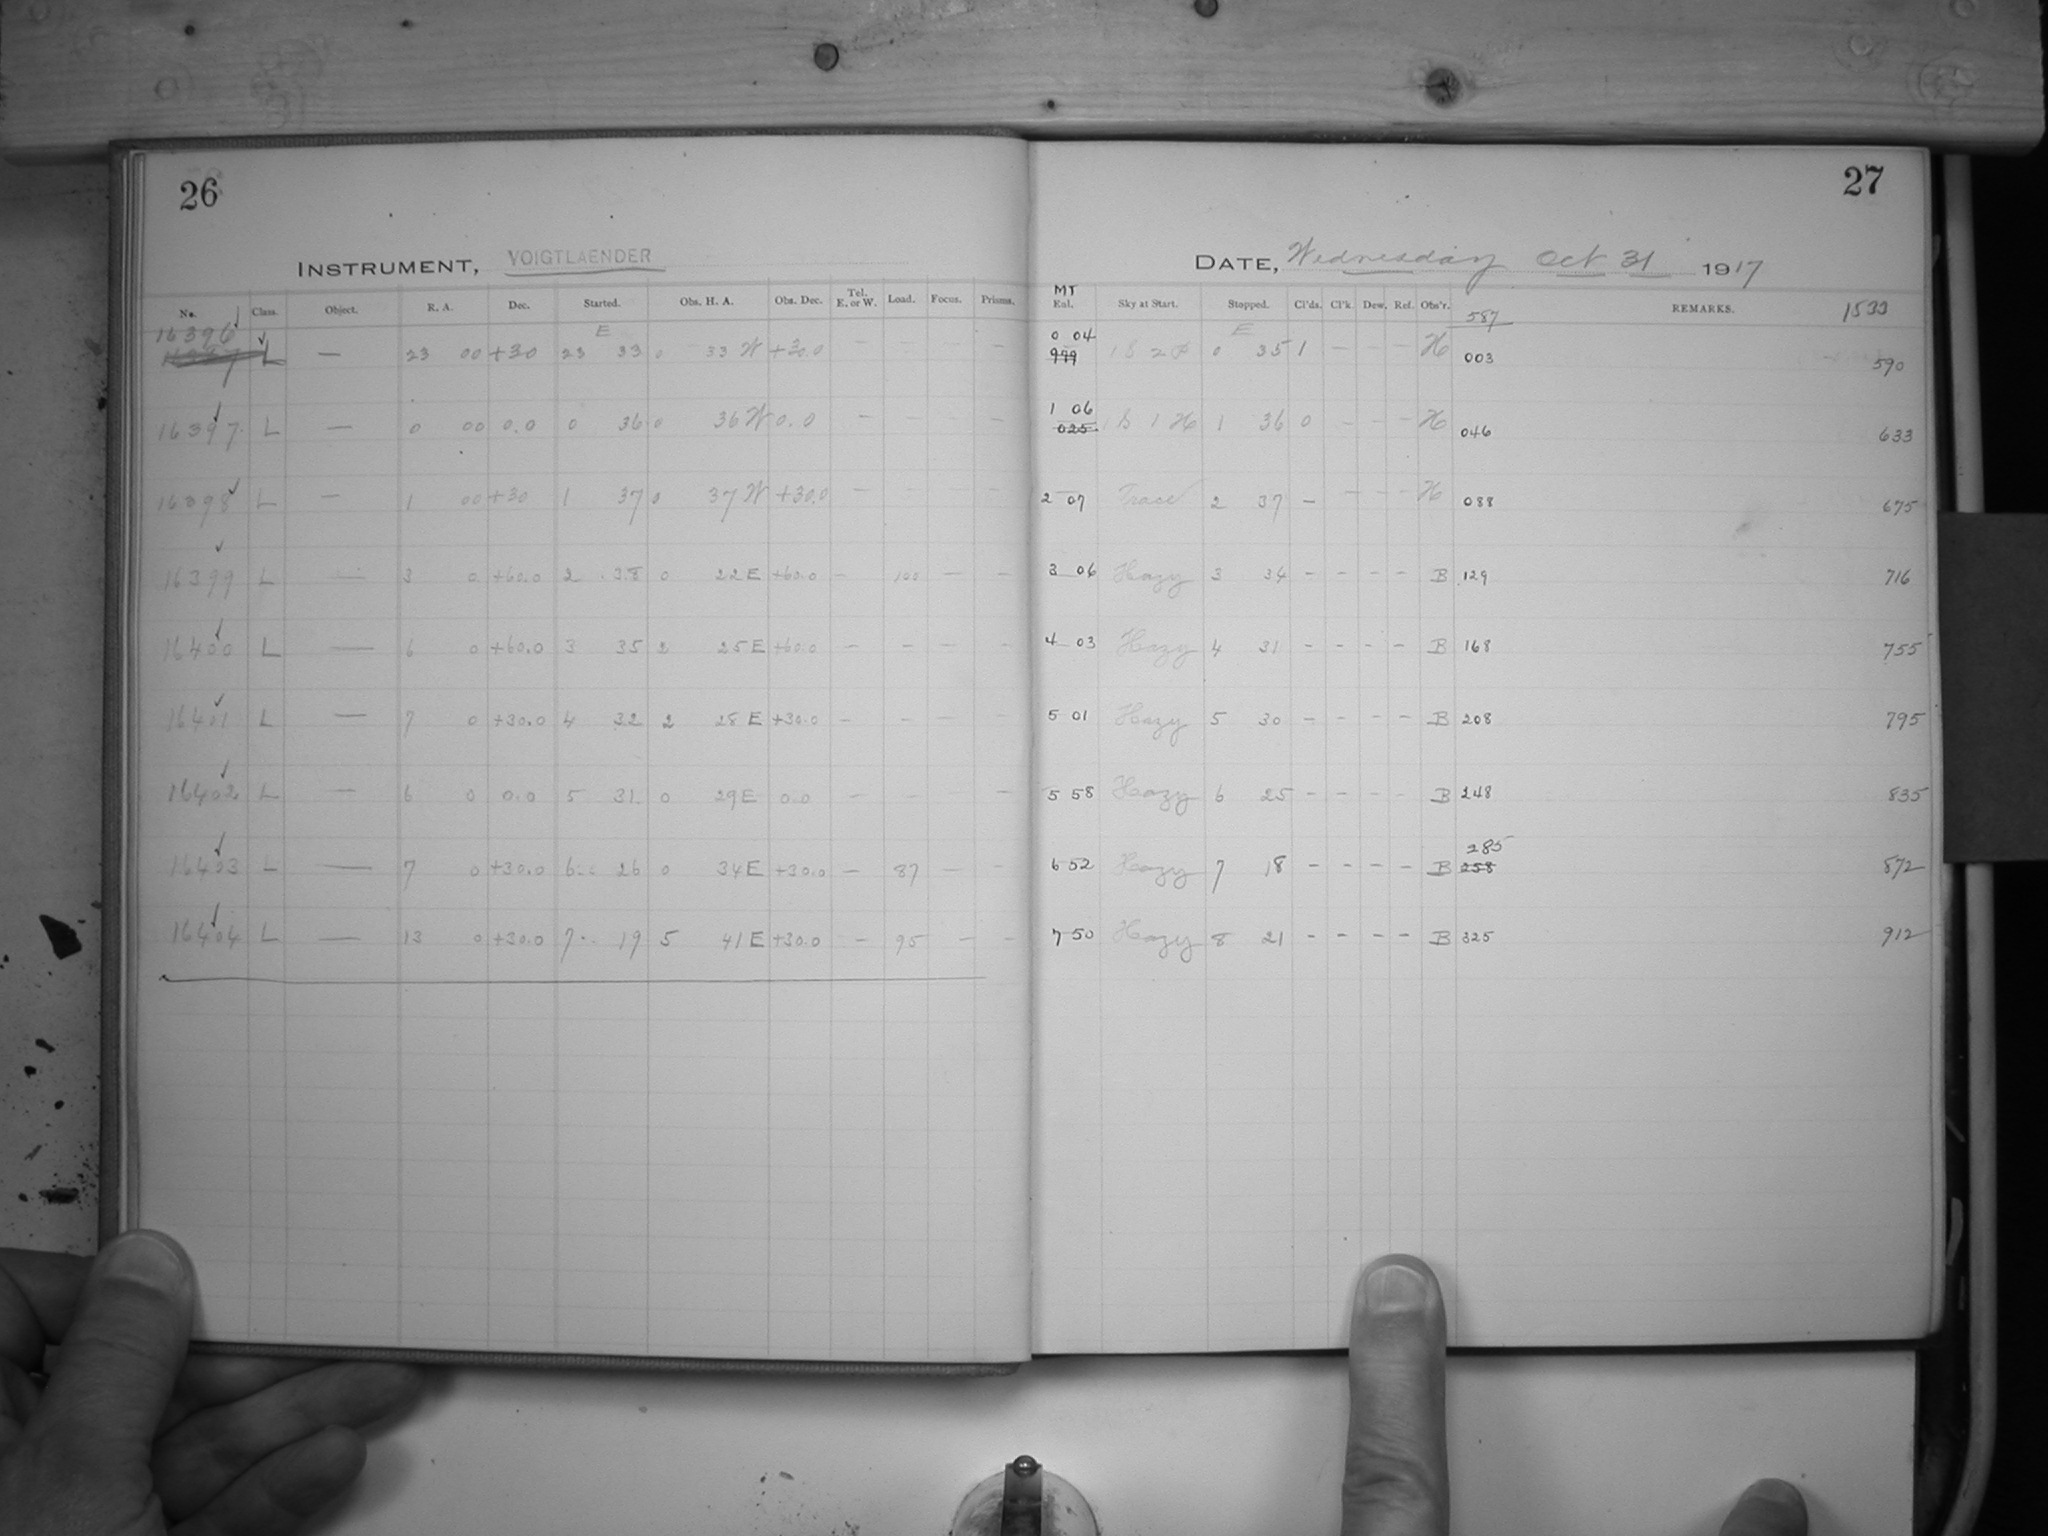 26
27
INSTRUMENT, VOIGTLAENDER
DATE, Wednesday Oct 31 1917
No. Class. Object. R. A. Dec. Started. Obs. H. A. Obs. Dec. Tel. E. or W. Load. Focus. Prisms. MT Enl. Sky at Start. Stopped. Cl'ds. Cl'k. Dew. Ref. Obs'r. 587 REMARKS. 1533
16396 E 0 04 E
L — 23 00 +30 23 33 0 33 W +30.0 — — — — 999 0 35 1 — — — H 003 590
16397 L — 0 00 0.0 0 36 0 36 W 0.0 — — — 1 06 025 1 36 0 — — — H 046 633
16398 L — 1 00 +30 1 37 0 37 W +30.0 — — — — 2 07 Trace 2 37 — — — — H 088 675
16399 L — 3 0 +60.0 2 38 0 22 E +60.0 — 100 — — 3 06 Hazy 3 34 — — — — B 129 716
16400 L — 6 0 +60.0 3 35 2 25 E +60.0 — — — — 4 03 Hazy 4 31 — — — — B 168 755
16401 L — 7 0 +30.0 4 32 2 28 E +30.0 — — — — 5 01 Hazy 5 30 — — — — B 208 795
16402 L — 6 0 0.0 5 31 0 29 E 0.0 — — — 5 58 Hazy 6 25 — — — — B 248 835
285
16403 L — 7 0 +30.0 6 26 0 34 E +30.0 — 87 — — 6 52 Hazy 7 18 — — — — B 258 872
16404 L — 13 0 +30.0 7 19 5 41 E +30.0 — 95 — — 7 50 Hazy 8 21 — — — — B 325 912